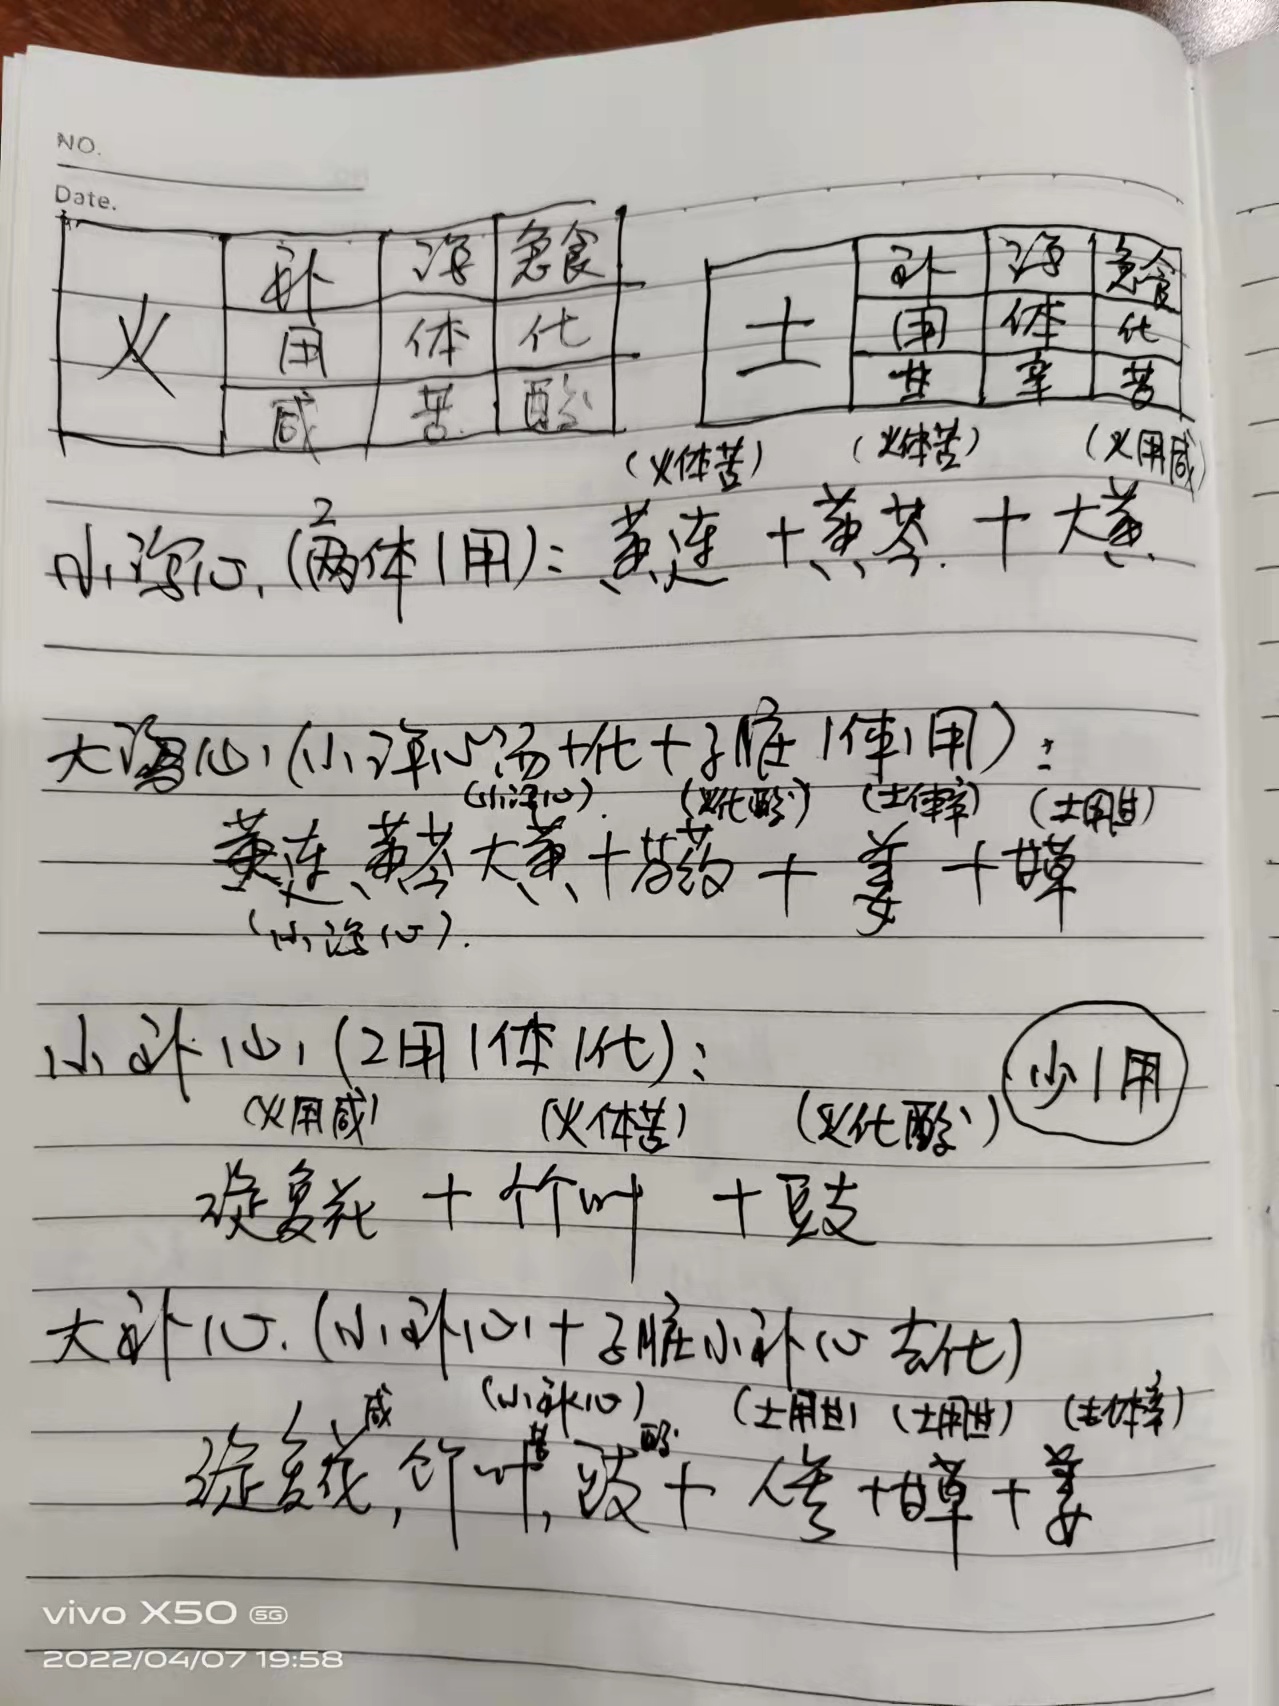 NO.
Date.
火 补 泻 急食
用 体 化
咸 苦 酸
土 补 泻 急食
用 体 化
甘 辛 苦
(火体苦) (火体苦) (火用咸)
小泻心.(两体1用): 黄连+黄芩+大黄
2
大泻心(小泻心汤+化+子脏1体1用):
(小泻心). (火化酸) (土体辛) (土用甘)
黄连、黄芩、大黄+芍药+姜+甘草
(小泻心).
小补心(2用1体1化):
少1用
(火用咸) (火体苦) (火化酸)
旋复花+竹叶+豆豉
大补心.(小补心+子脏小补心去化)
(小补心) (土用甘) (土用甘) (土体辛)
咸 苦 酸
旋复花,竹叶,豉+人参+甘草+姜
vivo X50 5G
2022/04/07 19:58